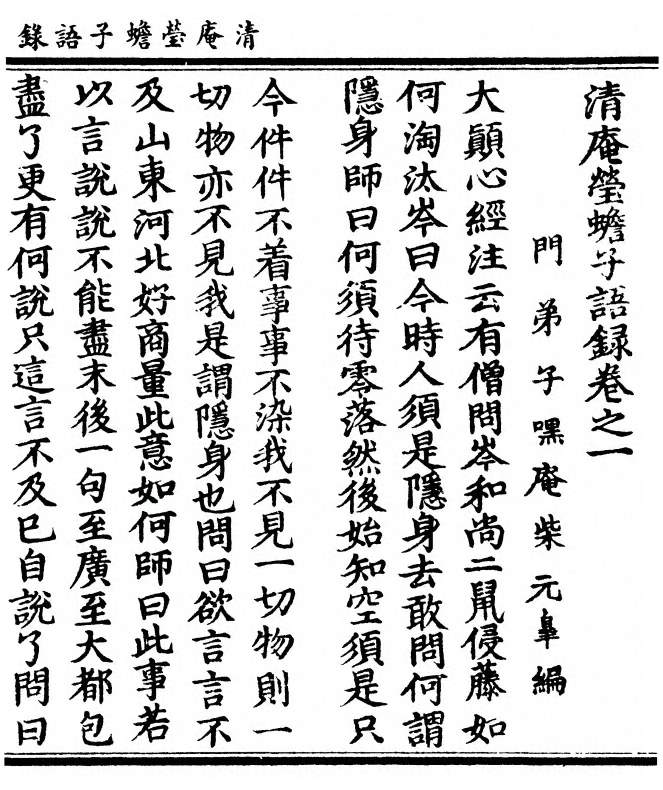 清庵瑩蟾子語錄
清庵瑩蟾子語録卷之一
門弟子嘿庵柴元皐編
大顚心經注云有僧問岑和尚二鼠侵藤如
何淘汰岑曰今時人須是隱身去敢問何謂
隱身師曰何須待零落然後始知空須是只
今件件不着事事不染我不見一切物則一
切物亦不見我是謂隱身也問曰欲言言不
及山東河北好商量此意如何師曰此事若
以言說說不能盡末後一句至廣至大都包
盡了更有何說只這言不及巳自說了問曰